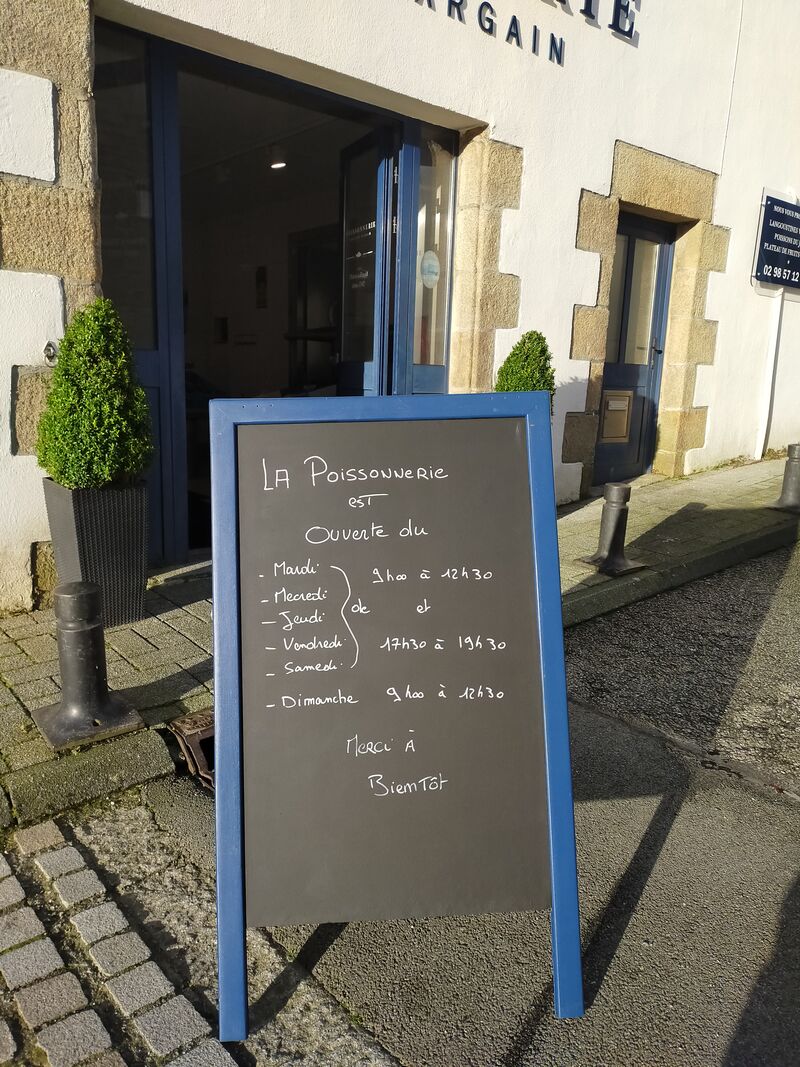 ARGAIN
POISSONNERIE
NOUS VOUS
LANGOUSTINES
POISSONS DU
PLATEAU DE FRUITS
02 98 57 12
LA POISSONNERIE
EST
OUVERTE du
- Mardi
- Mecredi
- Jeudi
- Vendredi
- Samedi
de 9h00 à 12h30
et
17h30 à 19h30
- Dimanche 9h00 à 12h30
MERCI À
BIEMTÔT